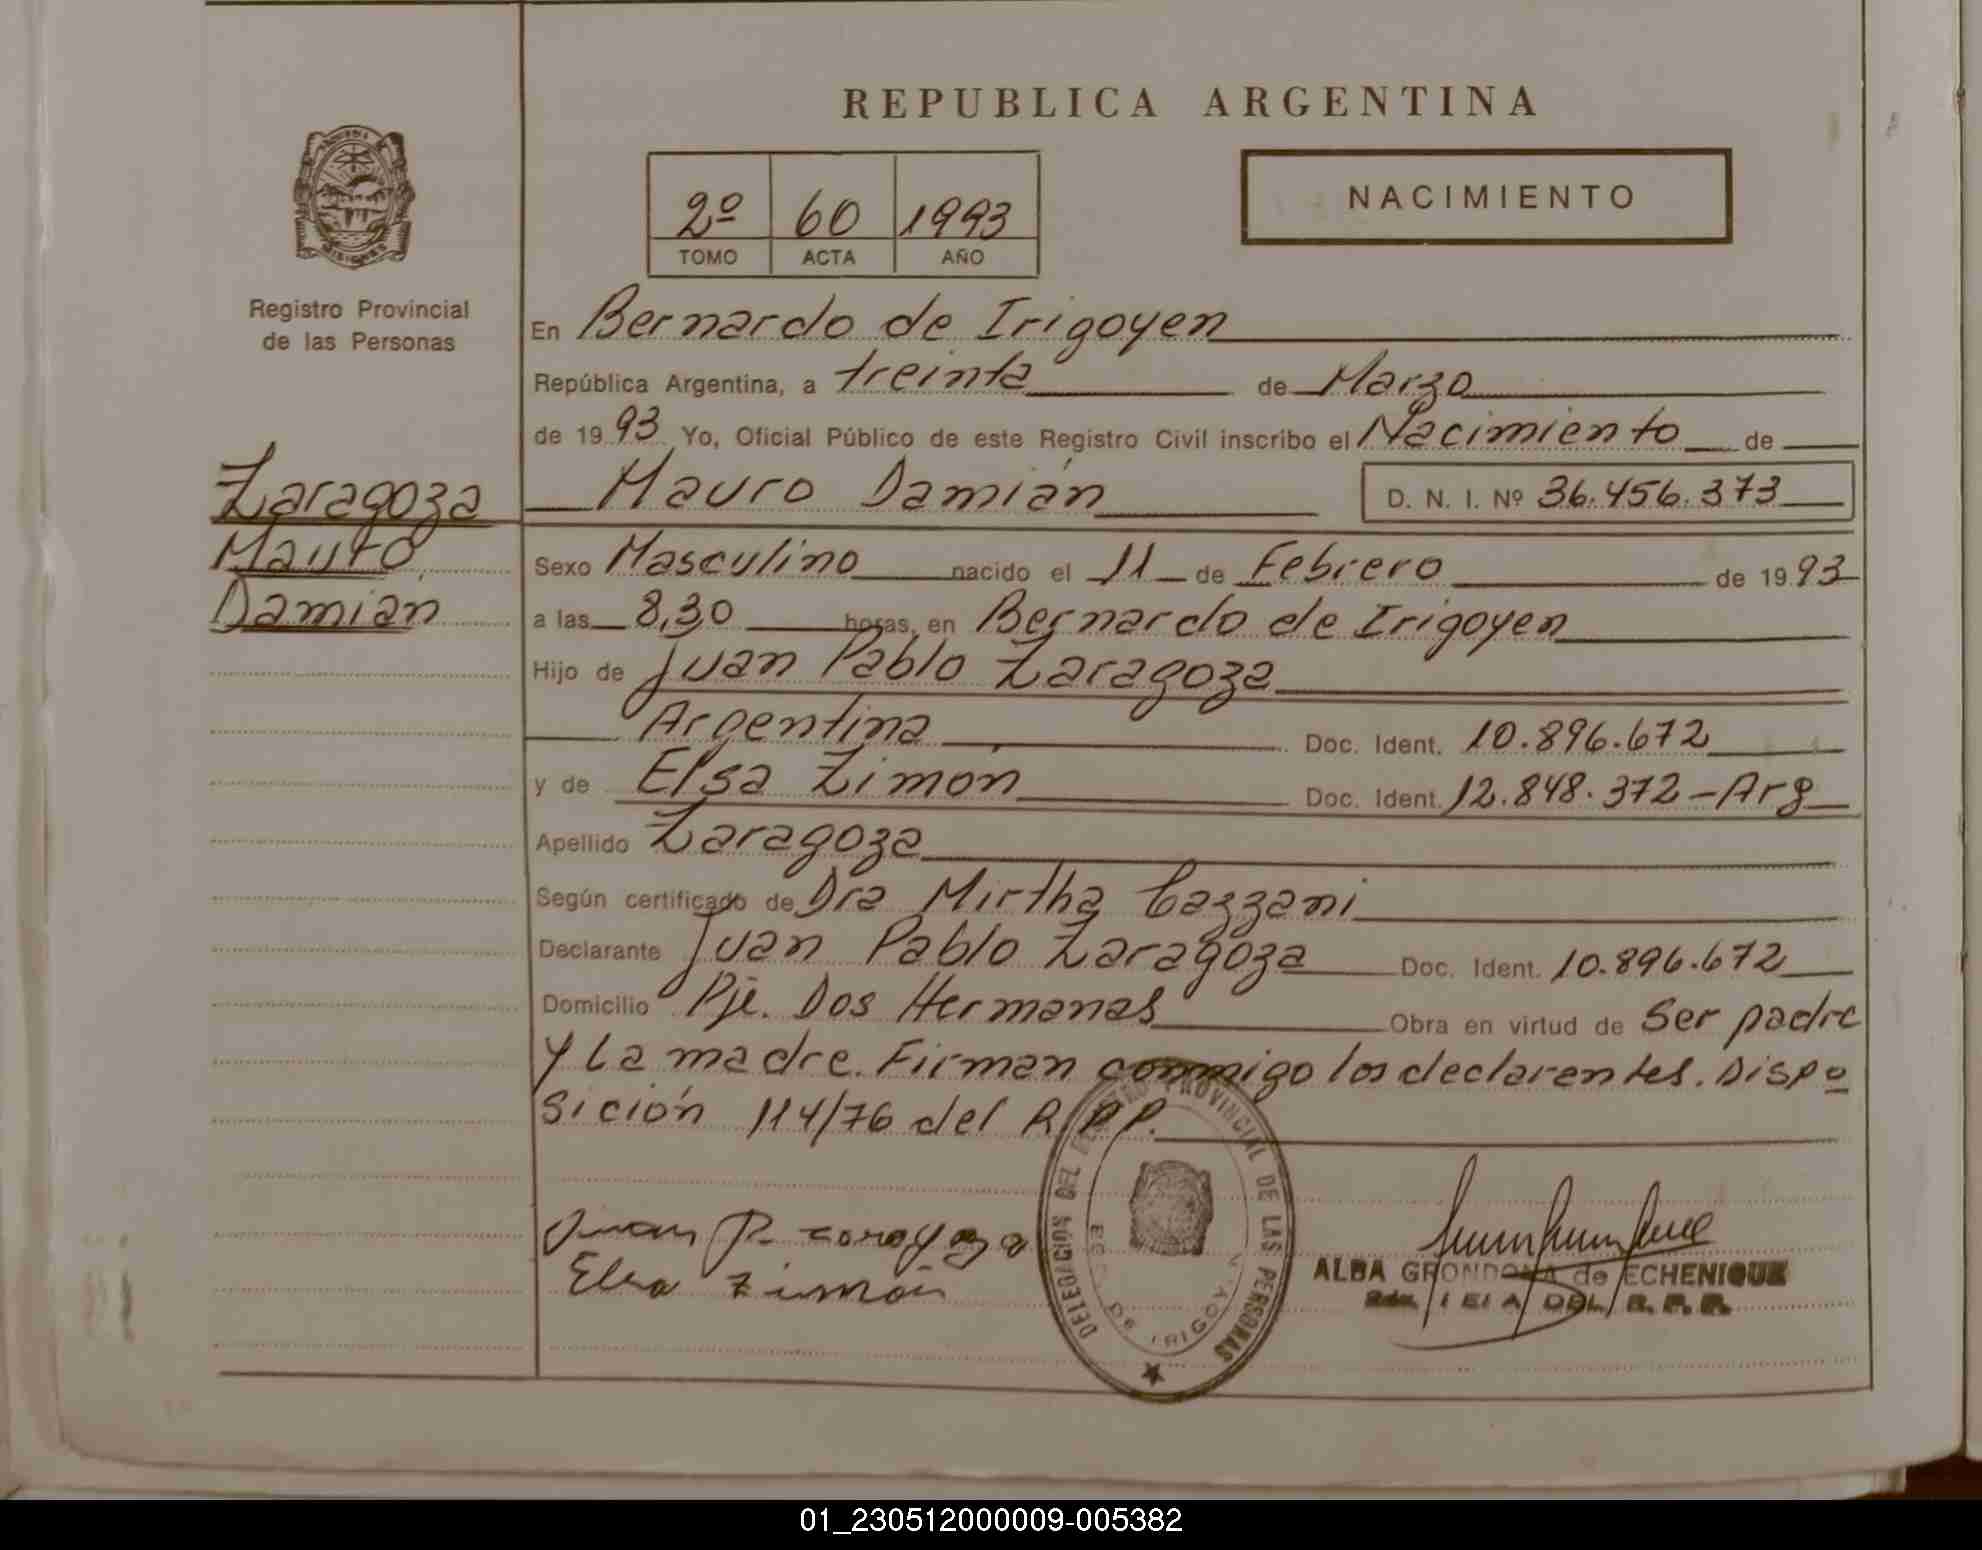 REPUBLICA ARGENTINA
2º 60 1993
TOMO ACTA AÑO
NACIMIENTO
MISIONES
Registro Provincial
de las Personas
Zaragoza
Mauro
Damian
En Bernardo de Irigoyen
República Argentina, a treinta de Marzo
de 19 93 Yo, Oficial Público de este Registro Civil inscribo el Nacimiento de
Mauro Damián D. N. I. Nº 36.456.373
Sexo Masculino nacido el 11 de Febrero de 19 93
a las 8,30 horas, en Bernardo de Irigoyen
Hijo de Juan Pablo Zaragoza
Argentina Doc. Ident. 10.896.672
y de Elsa Zimón Doc. Ident. 12.848.372 - Arg
Apellido Zaragoza
Según certificado de Dra Mirtha Cazzani
Declarante Juan Pablo Zaragoza Doc. Ident. 10.896.672
Domicilio Pje. Dos Hermanas Obra en virtud de Ser padre
y La madre. Firman conmigo los declarentes. Dispo
sición 114/76 del R.P.P.
Juan P. Zaragoza
Elsa Zimón
DELEGACION DEL REGISTRO PROVINCIAL DE LAS PERSONAS
DE IRIGOYEN
ALBA GRONDONA de ECHENIQUE
DEL R. P. P.
01_230512000009-005382